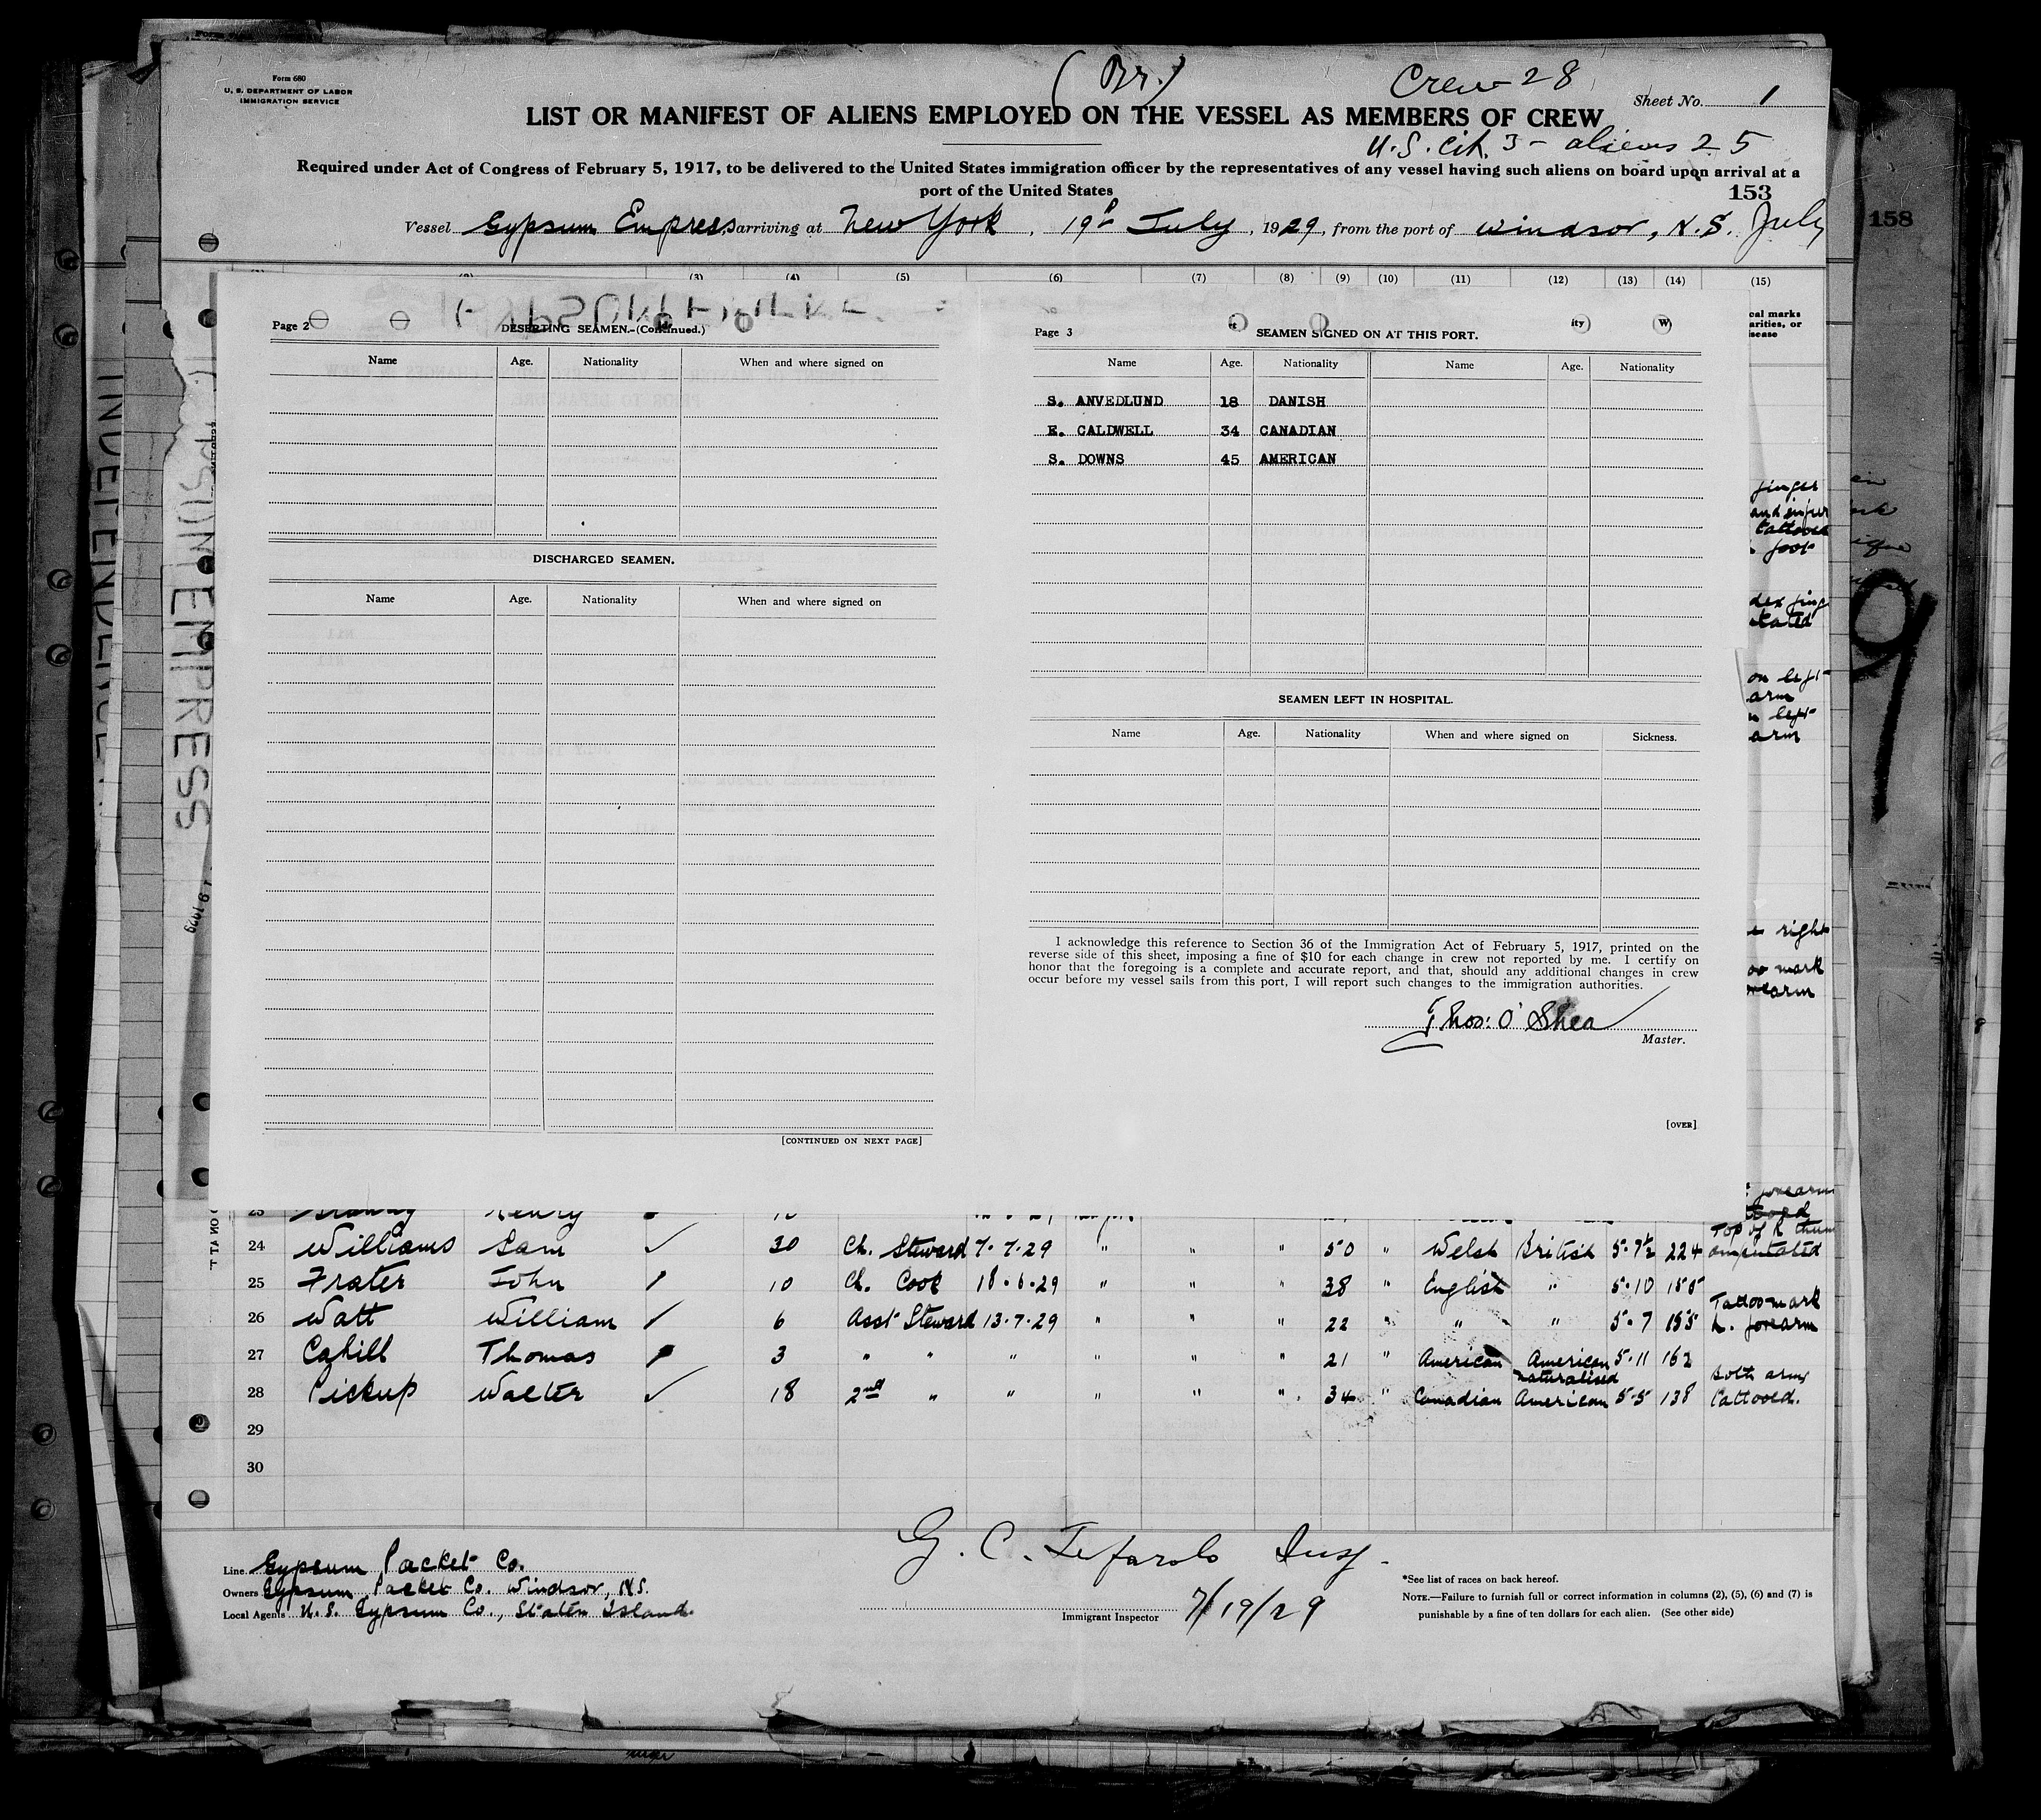 Form 680
U. S. DEPARTMENT OF LABOR
IMMIGRATION SERVICE
(Br.)
Crew 28
Sheet No. 1
LIST OR MANIFEST OF ALIENS EMPLOYED ON THE VESSEL AS MEMBERS OF CREW
U.S. Cit. 3 - aliens 25
Required under Act of Congress of February 5, 1917, to be delivered to the United States immigration officer by the representatives of any vessel having such aliens on board upon arrival at a
port of the United States
153
Vessel Gypsum Empress, arriving at New York, 19th July, 1929, from the port of Windsor, N.S. July
158
(3) (4) (5) (6) (7) (8) (9) (10) (11) (12) (13) (14) (15)
cal marks
arities, or
sease
Page 2
DESERTING SEAMEN.-(Continued.)
Name Age. Nationality When and where signed on
DISCHARGED SEAMEN.
Name Age. Nationality When and where signed on
[CONTINUED ON NEXT PAGE]
Page 3
SEAMEN SIGNED ON AT THIS PORT.
Name Age. Nationality Name Age. Nationality
S. ANVEDLUND 18 DANISH
E. CALDWELL 34 CANADIAN
S. DOWNS 45 AMERICAN
SEAMEN LEFT IN HOSPITAL.
Name Age. Nationality When and where signed on Sickness.
I acknowledge this reference to Section 36 of the Immigration Act of February 5, 1917, printed on the
reverse side of this sheet, imposing a fine of $10 for each change in crew not reported by me. I certify on
honor that the foregoing is a complete and accurate report, and that, should any additional changes in crew
occur before my vessel sails from this port, I will report such changes to the immigration authorities.
Thos: O'Shea
Master.
[OVER]
finger
tattooed
foot
on left
arm
left
arm
right
mark
forearm
EMPRESS
9
24 Williams Sam ✓ 30 Ch. Steward 7.7.29 " " " 50 " Welsh British 5-7½ 224 Top of R thum amputated
25 Frater John 10 Ch. Cook 18.6.29 " " " 38 " English " 5-10 155
26 Watt William 6 Asst Steward 13.7.29 " " " 22 " " " 5-7 155 Tattoo mark L. forearm
27 Cahill Thomas 3 " " " " " " 21 " American American 5-11 162
28 Pickup Walter ✓ 18 2nd " " " " " 34 " Canadian naturalised American 5-5 138 both arms tattooed.
29
30
Line Gypsum Packet Co.
Owners Gypsum Packet Co. Windsor, N.S.
Local Agents U.S. Gypsum Co., Staten Island.
Immigrant Inspector 7/19/29
*See list of races on back hereof.
NOTE.—Failure to furnish full or correct information in columns (2), (5), (6) and (7) is
punishable by a fine of ten dollars for each alien. (See other side)